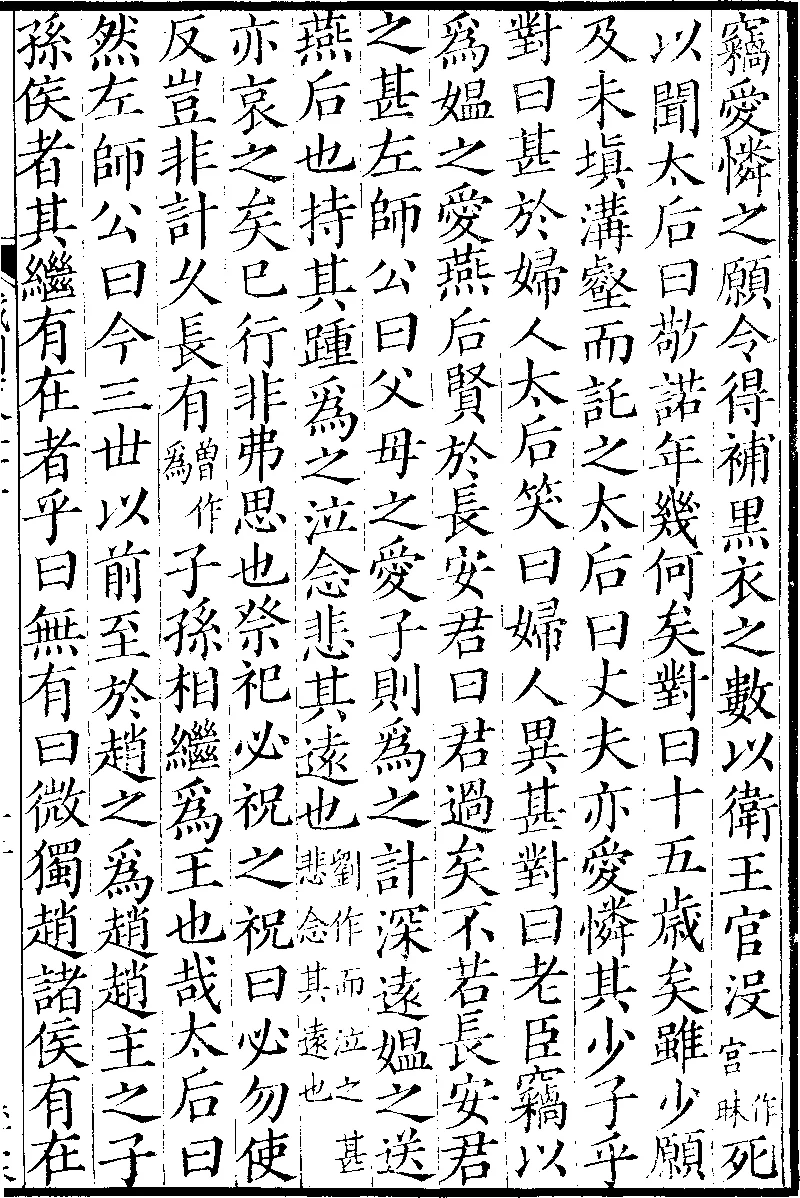 竊愛憐之願令得補黒衣之數以衛王官沒一作宫昧死
以聞太后曰敬諾年幾何矣對曰十五歳矣雖少願
及未塡溝壑而託之太后曰丈夫亦愛憐其少子乎
對曰甚於婦人太后笑曰婦人異甚對曰老臣竊以
爲媼之愛燕后賢於長安君曰君過矣不若長安君
之甚左師公曰父母之愛子則爲之計深遠媼之送
燕后也持其踵爲之泣念悲其遠也劉作而泣之甚悲念其遠也
亦哀之矣已行非弗思也祭祀必祝之祝曰必勿使
反豈非計久長有曽作爲子孫相繼爲王也哉太后曰
然左師公曰今三世以前至於趙之爲趙趙主之子
孫侯者其繼有在者乎曰無有曰微獨趙諸侯有在